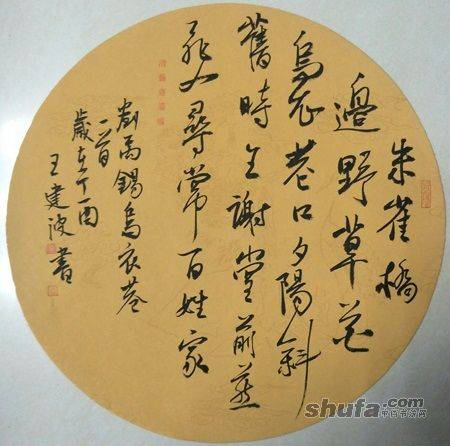 朱雀橋
邊野草花
烏衣巷口夕陽斜
舊時王謝堂前燕
飛入尋常百姓家
劉禹錫烏衣巷
一首
歲在丁酉
王建波書
shufa.com